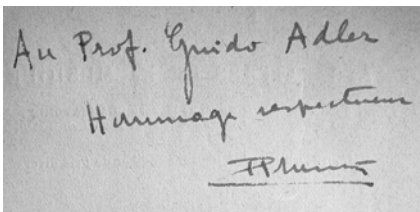 Au Prof. Guido Adler
Hommage respectueux